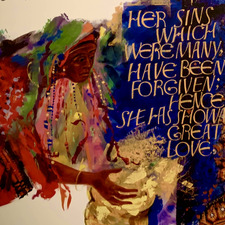 HER SINS
WHICH
WERE MANY,
HAVE BEEN
FORGIVEN;
HENCE
SHE HAS SHOWN
GREAT
LOVE.